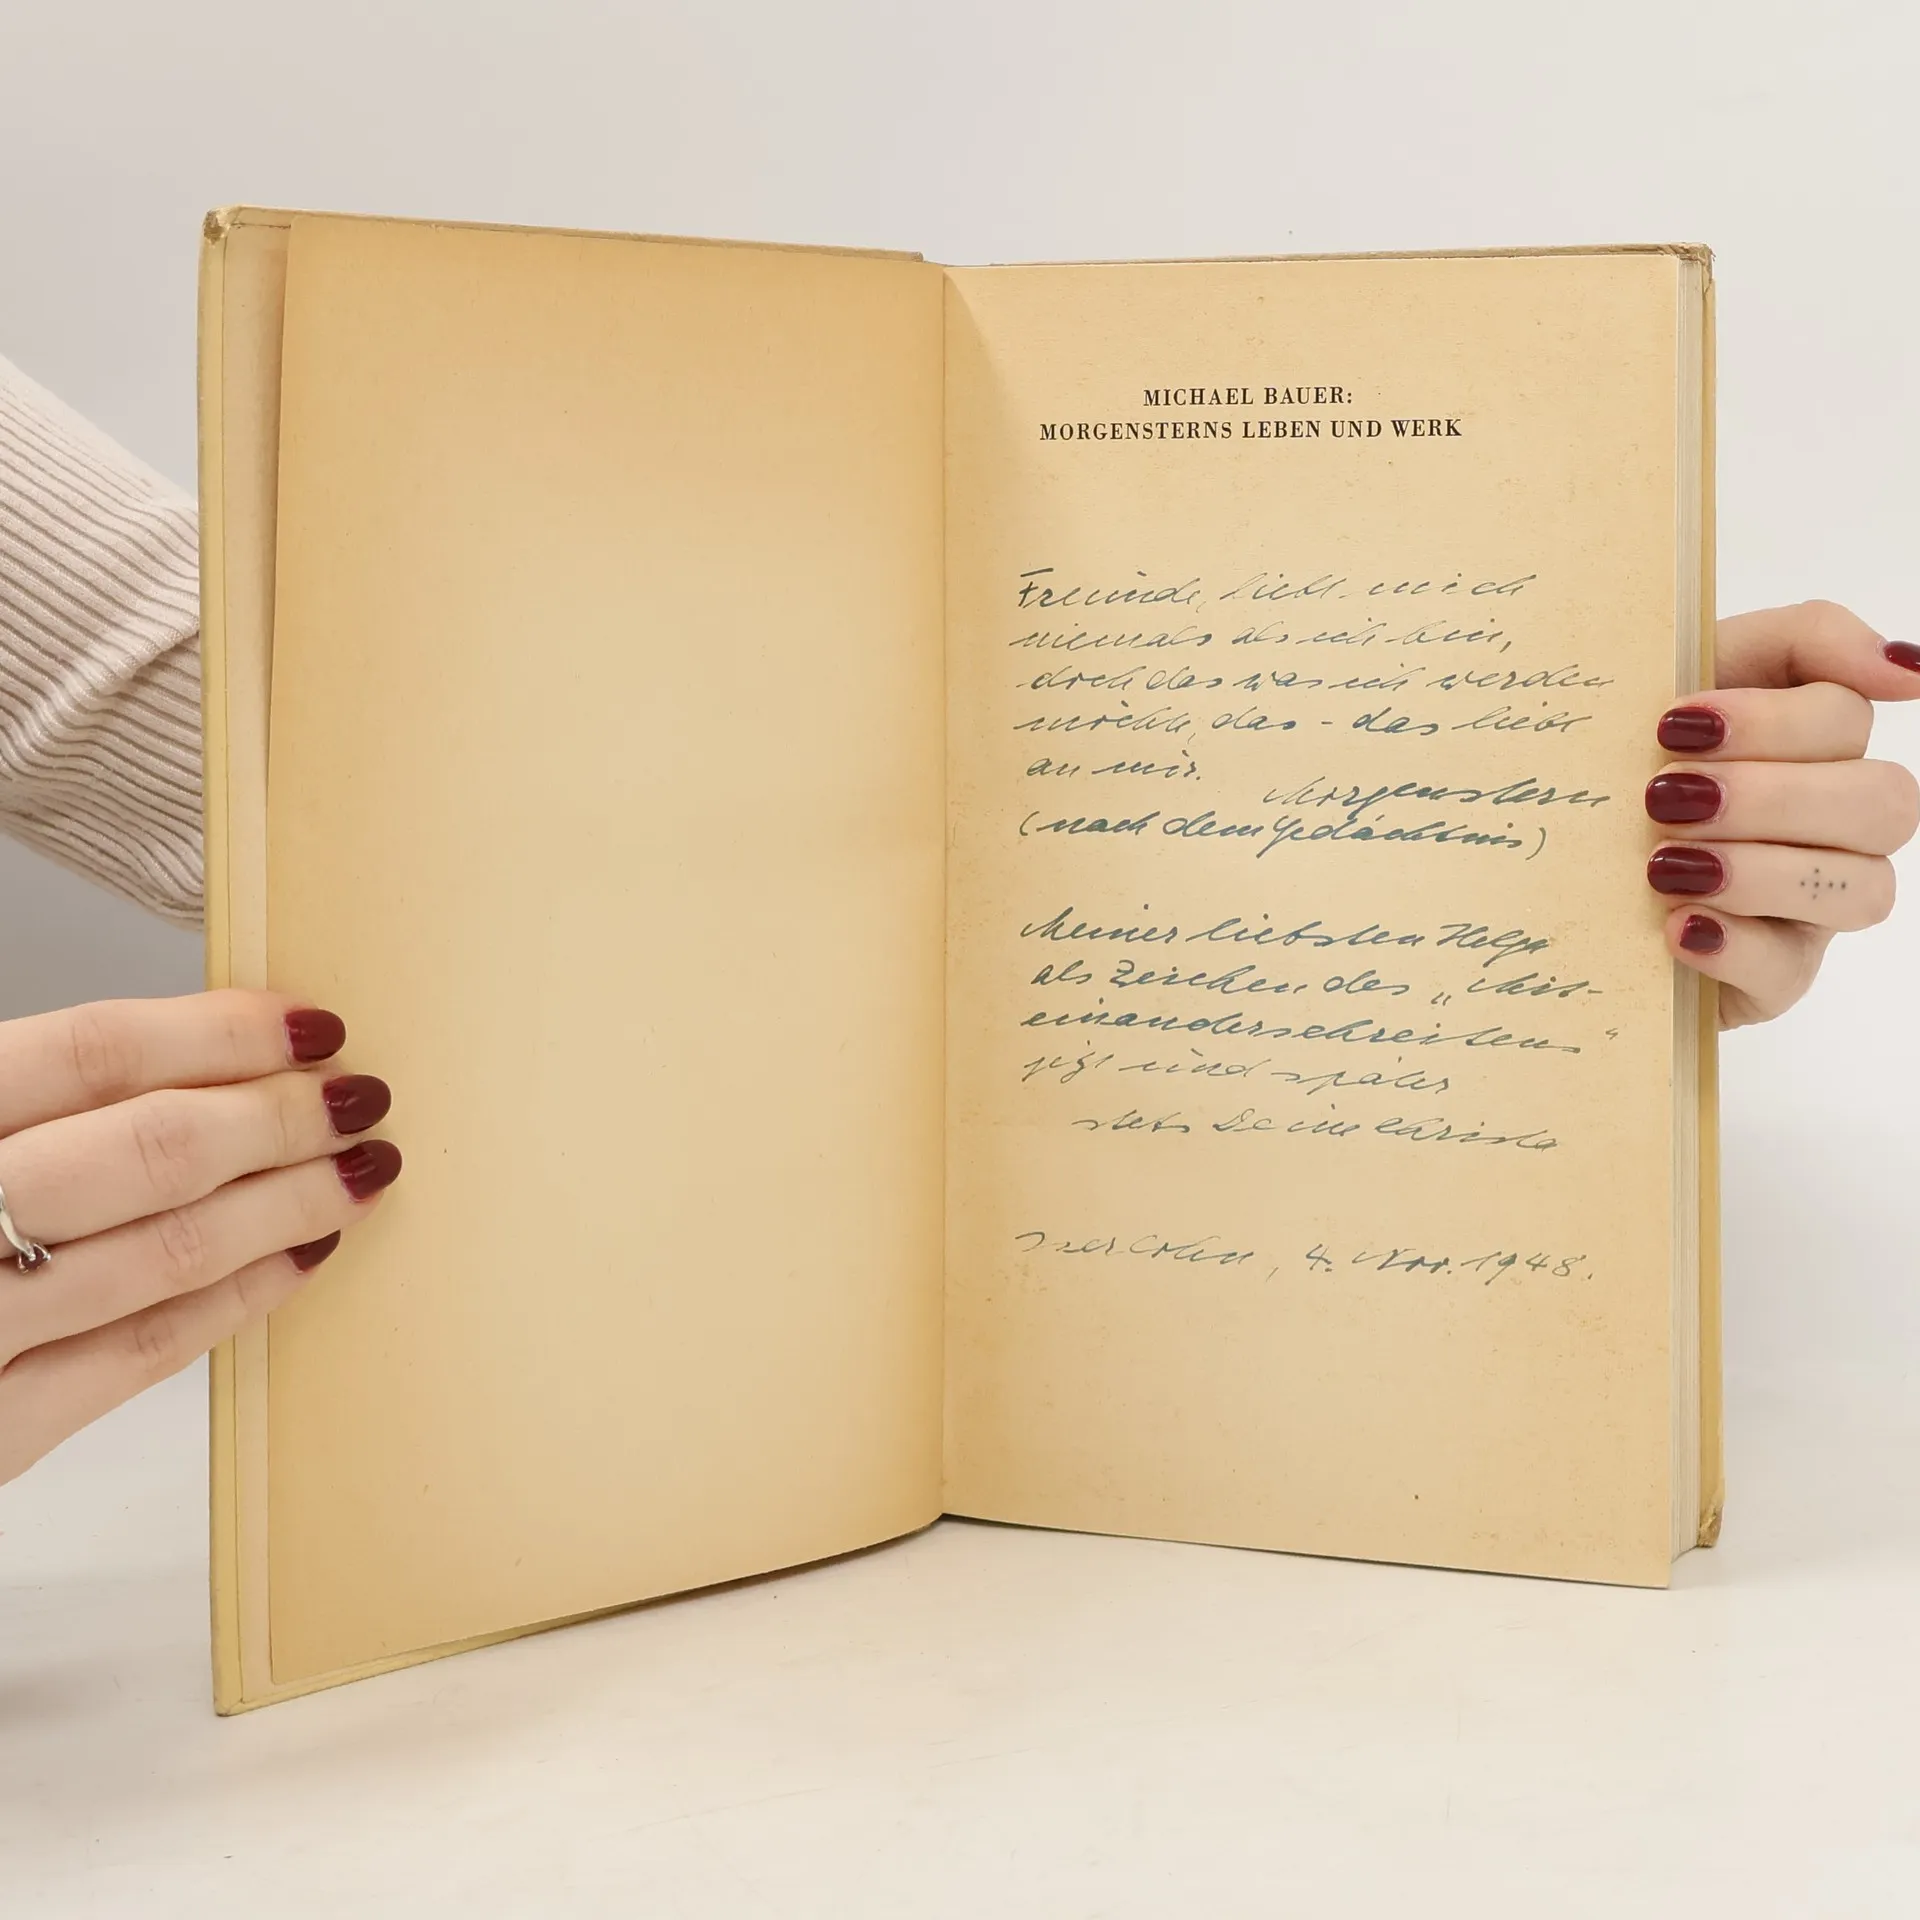 MICHAEL BAUER:
MORGENSTERNS LEBEN UND WERK
Freunde, liebt mich
niemals als ich bin,
doch das was ich werden
möchte, das - das liebt
an mir.
Morgenstern
(nach dem Gedächtnis)
Meiner liebsten Helga
als Zeichen des „Mit-
einanderschreitens“
jetzt und später
stets Deine Christa
Iserlohn, 4. Nov. 1948.